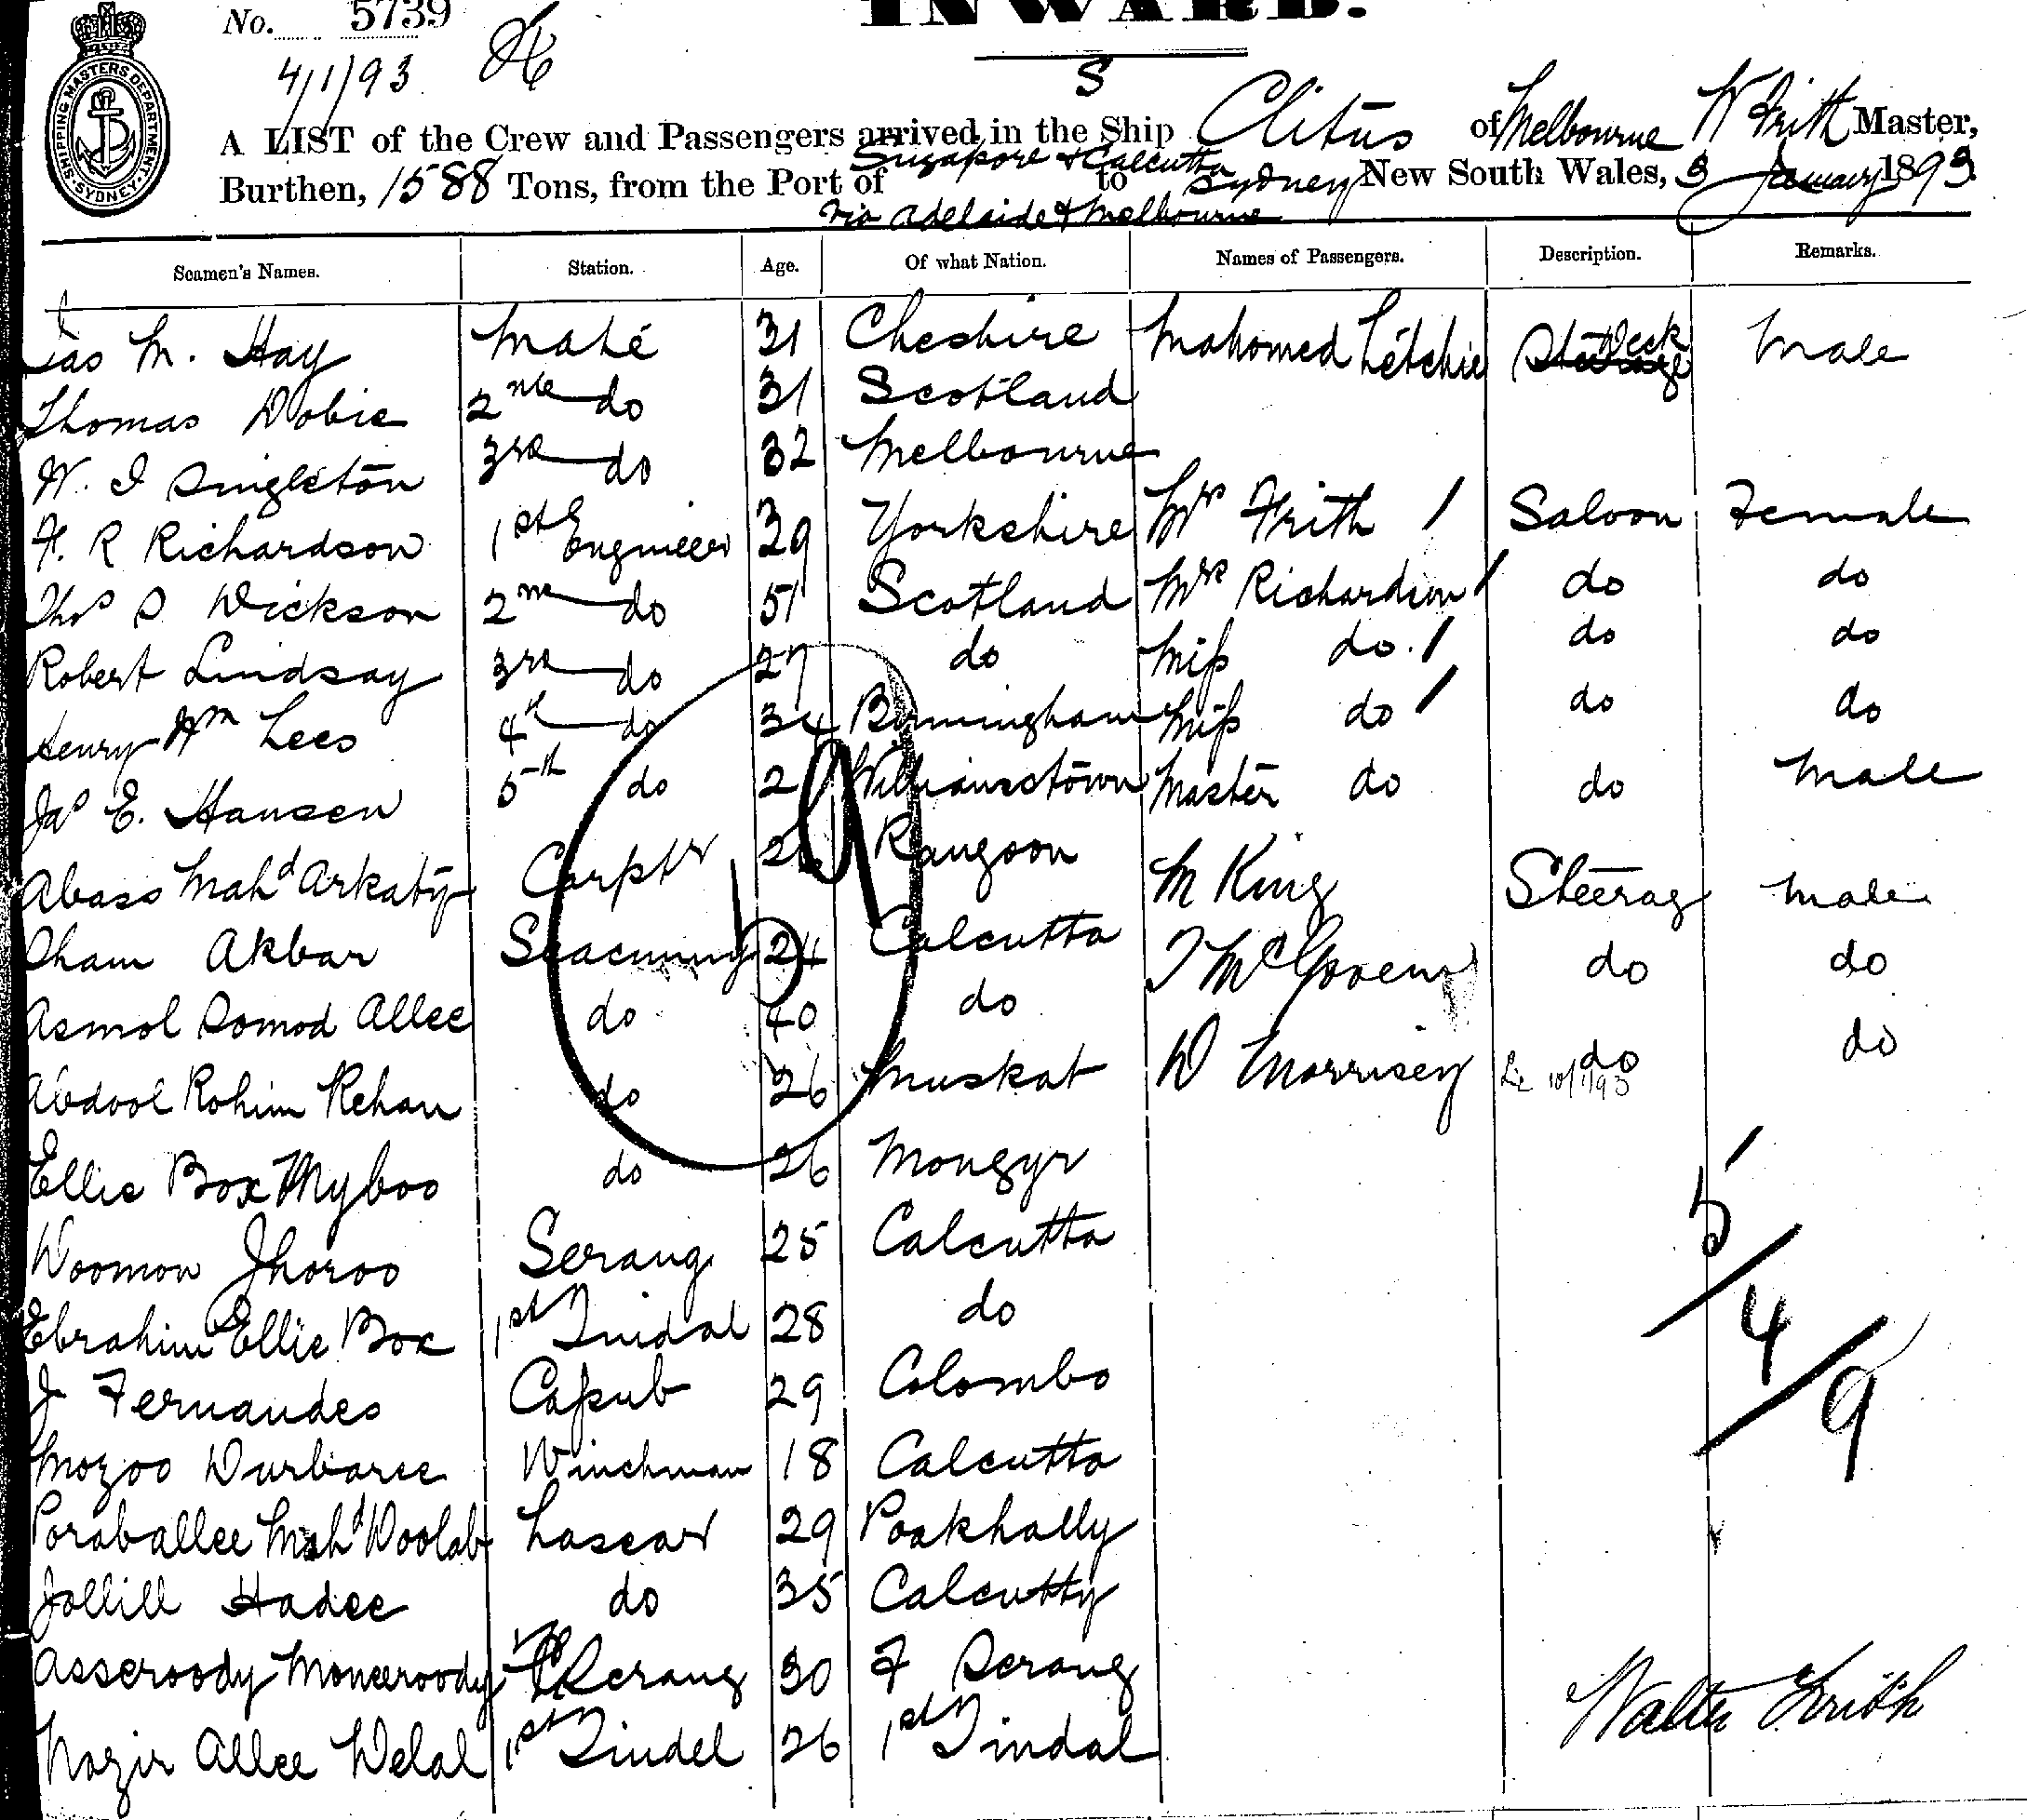 INWARD.
No. 5739
4/1/93
SHIPPING MASTERS DEPARTMENT SYDNEY
S
A LIST of the Crew and Passengers arrived in the Ship Clitus of Melbourne W Frith Master,
Burthen, 1588 Tons, from the Port of Singapore & Calcutta to Sydney New South Wales, 3 January 1893
via Adelaide & Melbourne
Seamen's Names. Station. Age. Of what Nation. Names of Passengers. Description. Remarks.
Jas M. Hay Mate 31 Cheshire Mahomed Letchie Deck Male
Thomas Dobie 2nd do 31 Scotland
W. I Singleton 3rd do 32 Melbourne
H. R Richardson 1st Engineer 39 Yorkshire Mrs Frith 1 Saloon Female
Thos S Dickson 2nd do 51 Scotland Mrs Richardson 1 do do
Robert Lindsay 3rd do 27 do Miss do. 1 do do
Henry Wm Lees 4th do 34 Birmingham Miss do 1 do do
Jas E. Hansen 5th do 2 Williamstown Master do do Male
Abass Mahd Arkaty Carptr 26 Rangoon M King Steerag Male
Akbar Seacunny 24 Calcutta J McGovern do do
Asmol Somod Allee do 40 do D Morrisey do do
Abdool Rohim Rehan do 26 Muskat 10/1/93
Ellie Box Myboo do 26 Mongyr
Woomon Jhoroo Serang 25 Calcutta 5
Ebrahim Ellie Box 1st Tindal 28 do 4
J Fernandes Capsub 29 Colombo 9
Mozoo Durbaree Winchman 18 Calcutta
Poraballee Mahd Woolab Lascar 29 Poakhally
Jollill Hadee do 35 Calcutty
Asseroody Moneeroody Serang 30 F Serang
Nozir Allee Delal 1st Tindel 26 1st Tindal
Walter Frith